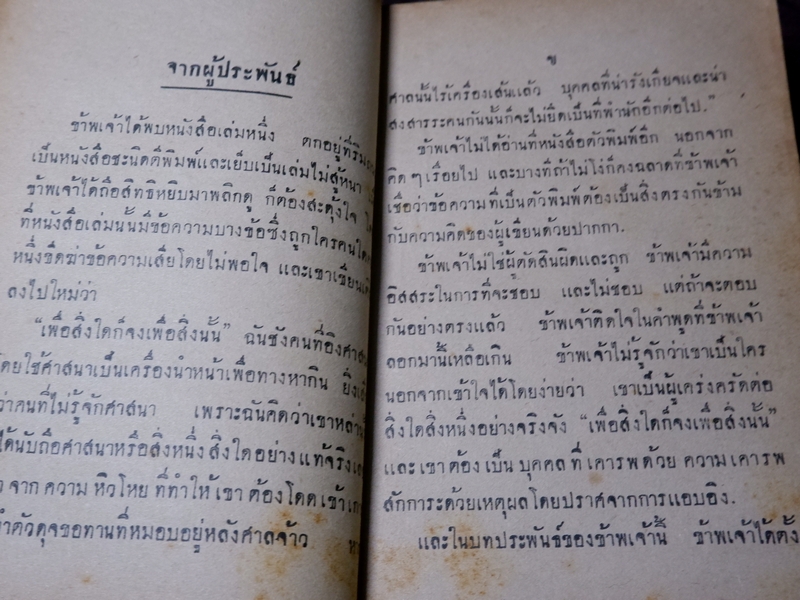 จากผู้ประพันธ์
ข้าพเจ้าได้พบหนังสือเล่มหนึ่ง ตกอยู่ที่ริม
เป็นหนังสือชะนิดตีพิมพ์และเย็บเป็นเล่มไม่สู้หนา
ข้าพเจ้าได้ถือสิทธิหยิบมาพลิกดู ก็ต้องสะดุ้งใจ
ที่หนังสือเล่มนั้นมีข้อความบางข้อซึ่งถูกใครคนใด
หนึ่งขีดฆ่าข้อความเสียโดยไม่พอใจ และเขาเขียน
ลงไปใหม่ว่า
"เพื่อสิ่งใดก็จงเพื่อสิ่งนั้น" ฉันชังคนที่อิงศาสน
โดยใช้ศาสนาเป็นเครื่องนำหน้าเพื่อทางหากิน ยิ่ง
ว่าคนที่ไม่รู้จักศาสนา เพราะฉันคิดว่าเขาหล่า
ได้นับถือศาสนาหรือสิ่งหนึ่ง สิ่งใดอย่าง แท้จริง
จาก ความ หิวโหย ที่ทำให้ เขา ต้อง โดด เข้า
ทำตัวดุจขอทานที่หมอบอยู่หลังศาลจ้าว
ข
ศาลนั้นไร้เครื่องเส้นแล้ว บุคคลที่น่ารังเกียจและน่า
สงสารระคนกันนั้นก็จะไม่ยึดเป็นที่พำนักอีกต่อไป."
ข้าพเจ้าไม่ได้อ่านที่หนังสือตัวพิมพ์อีก นอกจาก
คิดๆเรื่อยไป และบางทีถ้าไม่โง่ก็คงฉลาดที่ข้าพเจ้า
เชื่อว่าข้อความที่เป็นตัวพิมพ์ต้องเป็นสิ่งตรงกันข้าม
กับความคิดของผู้เขียนด้วยปากกา.
ข้าพเจ้าไม่ใช่ผู้ตัดสินผิดและถูก ข้าพเจ้ามีความ
อิสสระในการที่จะชอบ และไม่ชอบ แต่ถ้าจะตอบ
กันอย่างตรงแล้ว ข้าพเจ้าติดใจในคำพูดที่ข้าพเจ้า
ลอกมานี้เหลือเกิน ข้าพเจ้าไม่รู้จักว่าเขาเป็นใคร
นอกจากเข้าใจได้โดยง่ายว่า เขาเป็นผู้เคร่งครัดต่อ
สิ่งใดสิ่งหนึ่งอย่างจริงจัง "เพื่อสิ่งใดก็จงเพื่อสิ่งนั้น"
และ เขา ต้อง เป็น บุคคล ที่ เคารพ ด้วย ความ เคารพ
สักการะด้วยเหตุผลโดยปราศจากการแอบอิง.
และในบทประพันธ์ของข้าพเจ้านี้ ข้าพเจ้าได้ตั้ง